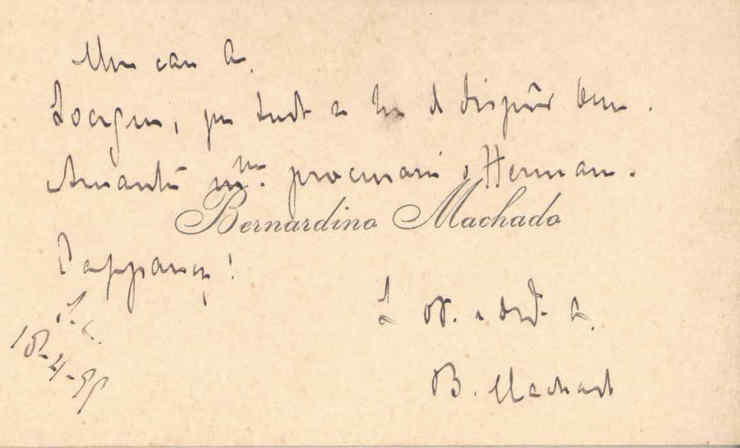 Meu caro A.
Socegue, que tudo se ha de dispôr bem.
Amanhã mm. procurarei o Hermano.
Bernardino Machado
Esperança!
S. C.
18-4-95
B. Machado